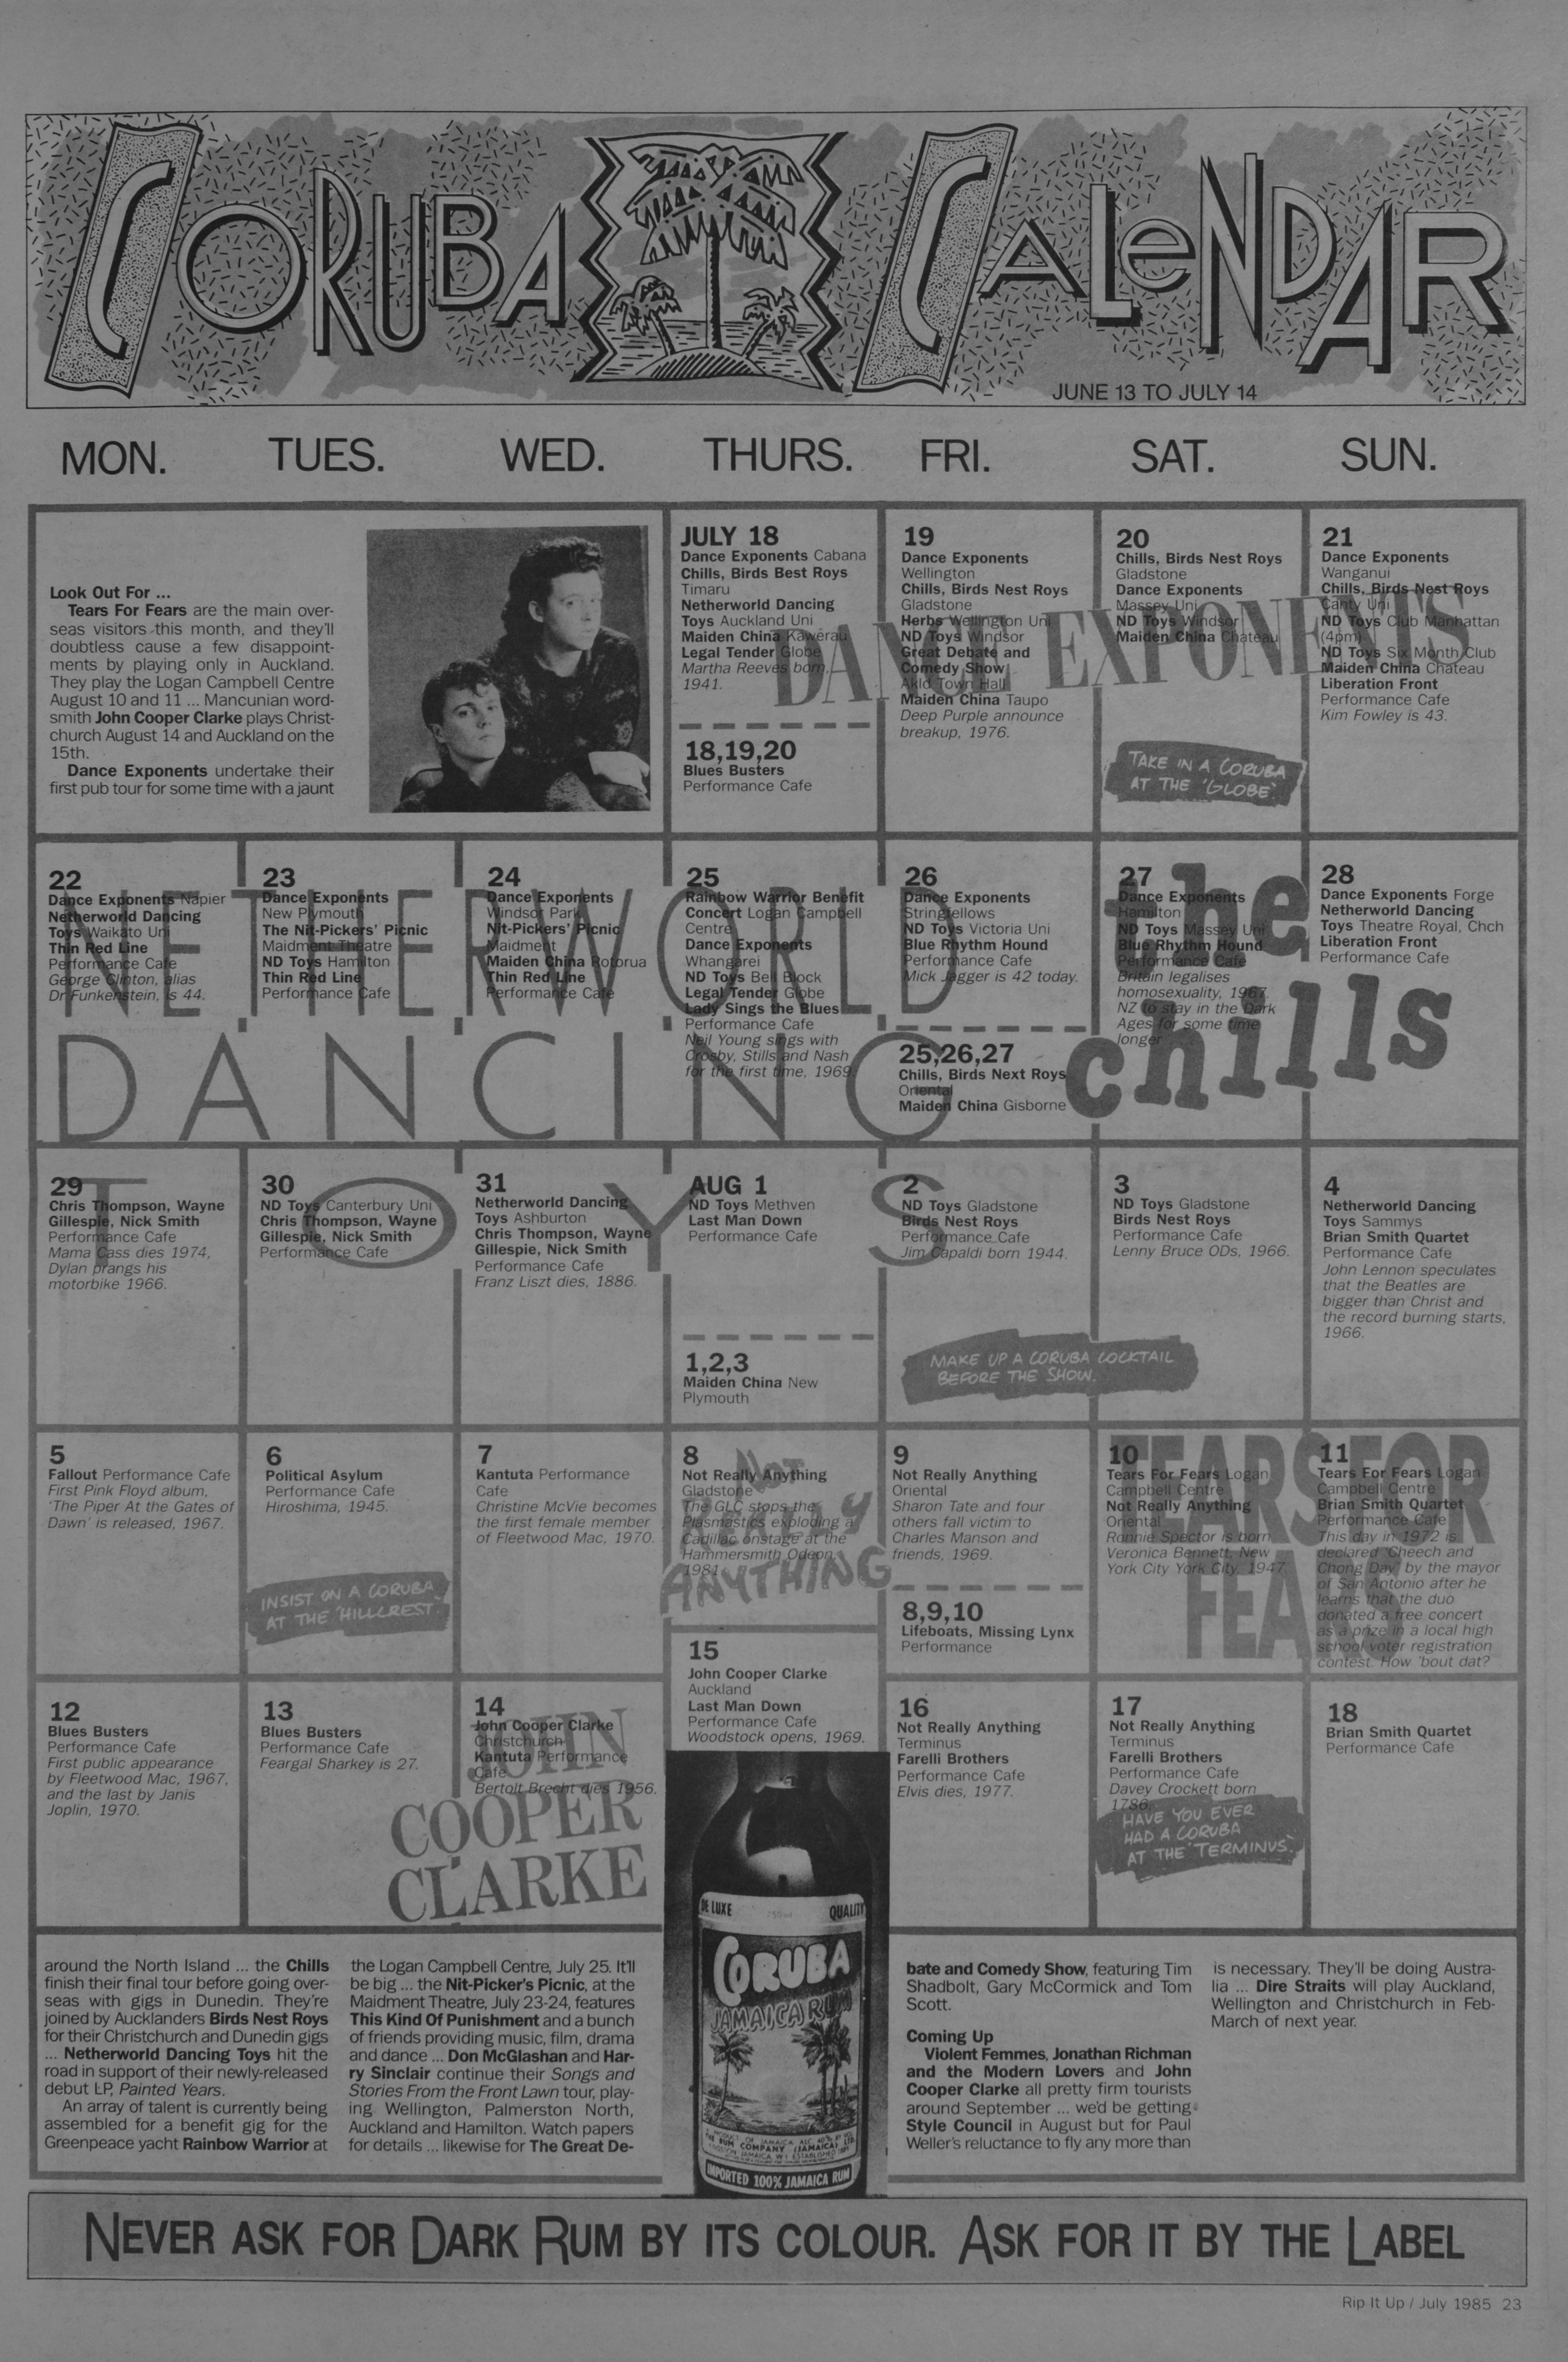 CORUBA CALENDAR
JUNE 13 TO JULY 14
MON. TUES. WED. THURS. FRI. SAT. SUN.
Look Out For ...
Tears For Fears are the main over-
seas visitors this month, and they'll
doubtless cause a few disappoint-
ments by playing only in Auckland.
They play the Logan Campbell Centre
August 10 and 11 ... Mancunian word-
smith John Cooper Clarke plays Christ-
church August 14 and Auckland on the
15th.
Dance Exponents undertake their
first pub tour for some time with a jaunt
JULY 18
Dance Exponents Cabana
Chills, Birds Best Roys
Timaru
Netherworld Dancing
Toys Auckland Uni
Maiden China Kawerau
Legal Tender Globe
Martha Reeves born,
1941.
18,19,20
Blues Busters
Performance Cafe
19
Dance Exponents
Wellington
Chills, Birds Nest Roys
Gladstone
Herbs Wellington Uni
ND Toys Windsor
Great Debate and
Comedy Show
Akld Town Hall
Maiden China Taupo
Deep Purple announce
breakup, 1976.
20
Chills, Birds Nest Roys
Gladstone
Dance Exponents
Massey Uni
ND Toys Windsor
Maiden China Chateau
TAKE IN A CORUBA
AT THE 'GLOBE'.
21
Dance Exponents
Wanganui
Chills, Birds Nest Roys
Canty Uni
ND Toys Club Manhattan
(4pm)
ND Toys Six Month Club
Maiden China Chateau
Liberation Front
Performance Cafe
Kim Fowley is 43.
DANCE EXPONENTS
22
Dance Exponents Napier
Netherworld Dancing
Toys Waikato Uni
Thin Red Line
Performance Cafe
George Clinton, alias
Dr Funkenstein, is 44.
23
Dance Exponents
New Plymouth
The Nit-Pickers' Picnic
Maidment Theatre
ND Toys Hamilton
Thin Red Line
Performance Cafe
24
Dance Exponents
Windsor Park
Nit-Pickers' Picnic
Maidment
Maiden China Rotorua
Thin Red Line
Performance Cafe
25
Rainbow Warrior Benefit
Concert Logan Campbell
Centre
Dance Exponents
Whangarei
ND Toys Bell Block
Legal Tender Globe
Lady Sings the Blues
Performance Cafe
Neil Young sings with
Crosby, Stills and Nash
for the first time, 1969.
26
Dance Exponents
Stringfellows
ND Toys Victoria Uni
Blue Rhythm Hound
Performance Cafe
Mick Jagger is 42 today.
25,26,27
Chills, Birds Next Roys
Oriental
Maiden China Gisborne
27
Dance Exponents
Hamilton
ND Toys Massey Uni
Blue Rhythm Hound
Performance Cafe
Britain legalises
homosexuality, 1967.
NZ to stay in the Dark
Ages for some time
longer
28
Dance Exponents Forge
Netherworld Dancing
Toys Theatre Royal, Chch
Liberation Front
Performance Cafe
the
chills
NETHERWORLD
DANCING
TOYS
29
Chris Thompson, Wayne
Gillespie, Nick Smith
Performance Cafe
Mama Cass dies 1974,
Dylan prangs his
motorbike 1966.
30
ND Toys Canterbury Uni
Chris Thompson, Wayne
Gillespie, Nick Smith
Performance Cafe
31
Netherworld Dancing
Toys Ashburton
Chris Thompson, Wayne
Gillespie, Nick Smith
Performance Cafe
Franz Liszt dies, 1886.
AUG 1
ND Toys Methven
Last Man Down
Performance Cafe
1,2,3
Maiden China New
Plymouth
2
ND Toys Gladstone
Birds Nest Roys
Performance Cafe
Jim Capaldi born 1944.
MAKE UP A CORUBA COCKTAIL
BEFORE THE SHOW.
3
ND Toys Gladstone
Birds Nest Roys
Performance Cafe
Lenny Bruce ODs, 1966.
4
Netherworld Dancing
Toys Sammys
Brian Smith Quartet
Performance Cafe
John Lennon speculates
that the Beatles are
bigger than Christ and
the record burning starts,
1966.
5
Fallout Performance Cafe
First Pink Floyd album,
'The Piper At the Gates of
Dawn' is released, 1967.
6
Political Asylum
Performance Cafe
Hiroshima, 1945.
INSIST ON A CORUBA
AT THE 'HILLCREST'.
7
Kantuta Performance
Cafe
Christine McVie becomes
the first female member
of Fleetwood Mac, 1970.
8
Not Really Anything
Gladstone
The GLC stops the
Plasmastics exploding a
Cadillac onstage at the
Hammersmith Odeon,
1981.
NOT
REALLY
ANYTHING
9
Not Really Anything
Oriental
Sharon Tate and four
others fall victim to
Charles Manson and
friends, 1969.
8,9,10
Lifeboats, Missing Lynx
Performance
10
Tears For Fears Logan
Campbell Centre
Not Really Anything
Oriental
Ronnie Spector is born
Veronica Bennett, New
York City York City, 1947.
11
Tears For Fears Logan
Campbell Centre
Brian Smith Quartet
Performance Cafe
This day in 1972 is
declared 'Cheech and
Chong Day' by the mayor
of San Antonio after he
learns that the duo
donated a free concert
as a prize in a local high
school voter registration
contest. How 'bout dat?
TEARS FOR
FEARS
12
Blues Busters
Performance Cafe
First public appearance
by Fleetwood Mac, 1967,
and the last by Janis
Joplin, 1970.
13
Blues Busters
Performance Cafe
Feargal Sharkey is 27.
14
John Cooper Clarke
Christchurch
Kantuta Performance
Cafe
Bertolt Brecht dies 1956.
JOHN
COOPER
CLARKE
15
John Cooper Clarke
Auckland
Last Man Down
Performance Cafe
Woodstock opens, 1969.
16
Not Really Anything
Terminus
Farelli Brothers
Performance Cafe
Elvis dies, 1977.
17
Not Really Anything
Terminus
Farelli Brothers
Performance Cafe
Davey Crockett born
1786.
HAVE YOU EVER
HAD A CORUBA
AT THE 'TERMINUS'.
18
Brian Smith Quartet
Performance Cafe
around the North Island ... the Chills
finish their final tour before going over-
seas with gigs in Dunedin. They're
joined by Aucklanders Birds Nest Roys
for their Christchurch and Dunedin gigs
... Netherworld Dancing Toys hit the
road in support of their newly-released
debut LP, Painted Years.
An array of talent is currently being
assembled for a benefit gig for the
Greenpeace yacht Rainbow Warrior at
the Logan Campbell Centre, July 25. It'll
be big ... the Nit-Picker's Picnic, at the
Maidment Theatre, July 23-24, features
This Kind Of Punishment and a bunch
of friends providing music, film, drama
and dance ... Don McGlashan and Har-
ry Sinclair continue their Songs and
Stories From the Front Lawn tour, play-
ing Wellington, Palmerston North,
Auckland and Hamilton. Watch papers
for details ... likewise for The Great De-
DE LUXE 750ml QUALITY
CORUBA
JAMAICA RUM
THE RUM COMPANY (JAMAICA) LTD
IMPORTED 100% JAMAICA RUM
bate and Comedy Show, featuring Tim
Shadbolt, Gary McCormick and Tom
Scott.
Coming Up
Violent Femmes, Jonathan Richman
and the Modern Lovers and John
Cooper Clarke all pretty firm tourists
around September ... we'd be getting
Style Council in August but for Paul
Weller's reluctance to fly any more than
is necessary. They'll be doing Austra-
lia ... Dire Straits will play Auckland,
Wellington and Christchurch in Feb-
March of next year.
NEVER ASK FOR DARK RUM BY ITS COLOUR. ASK FOR IT BY THE LABEL
Rip It Up / July 1985 23